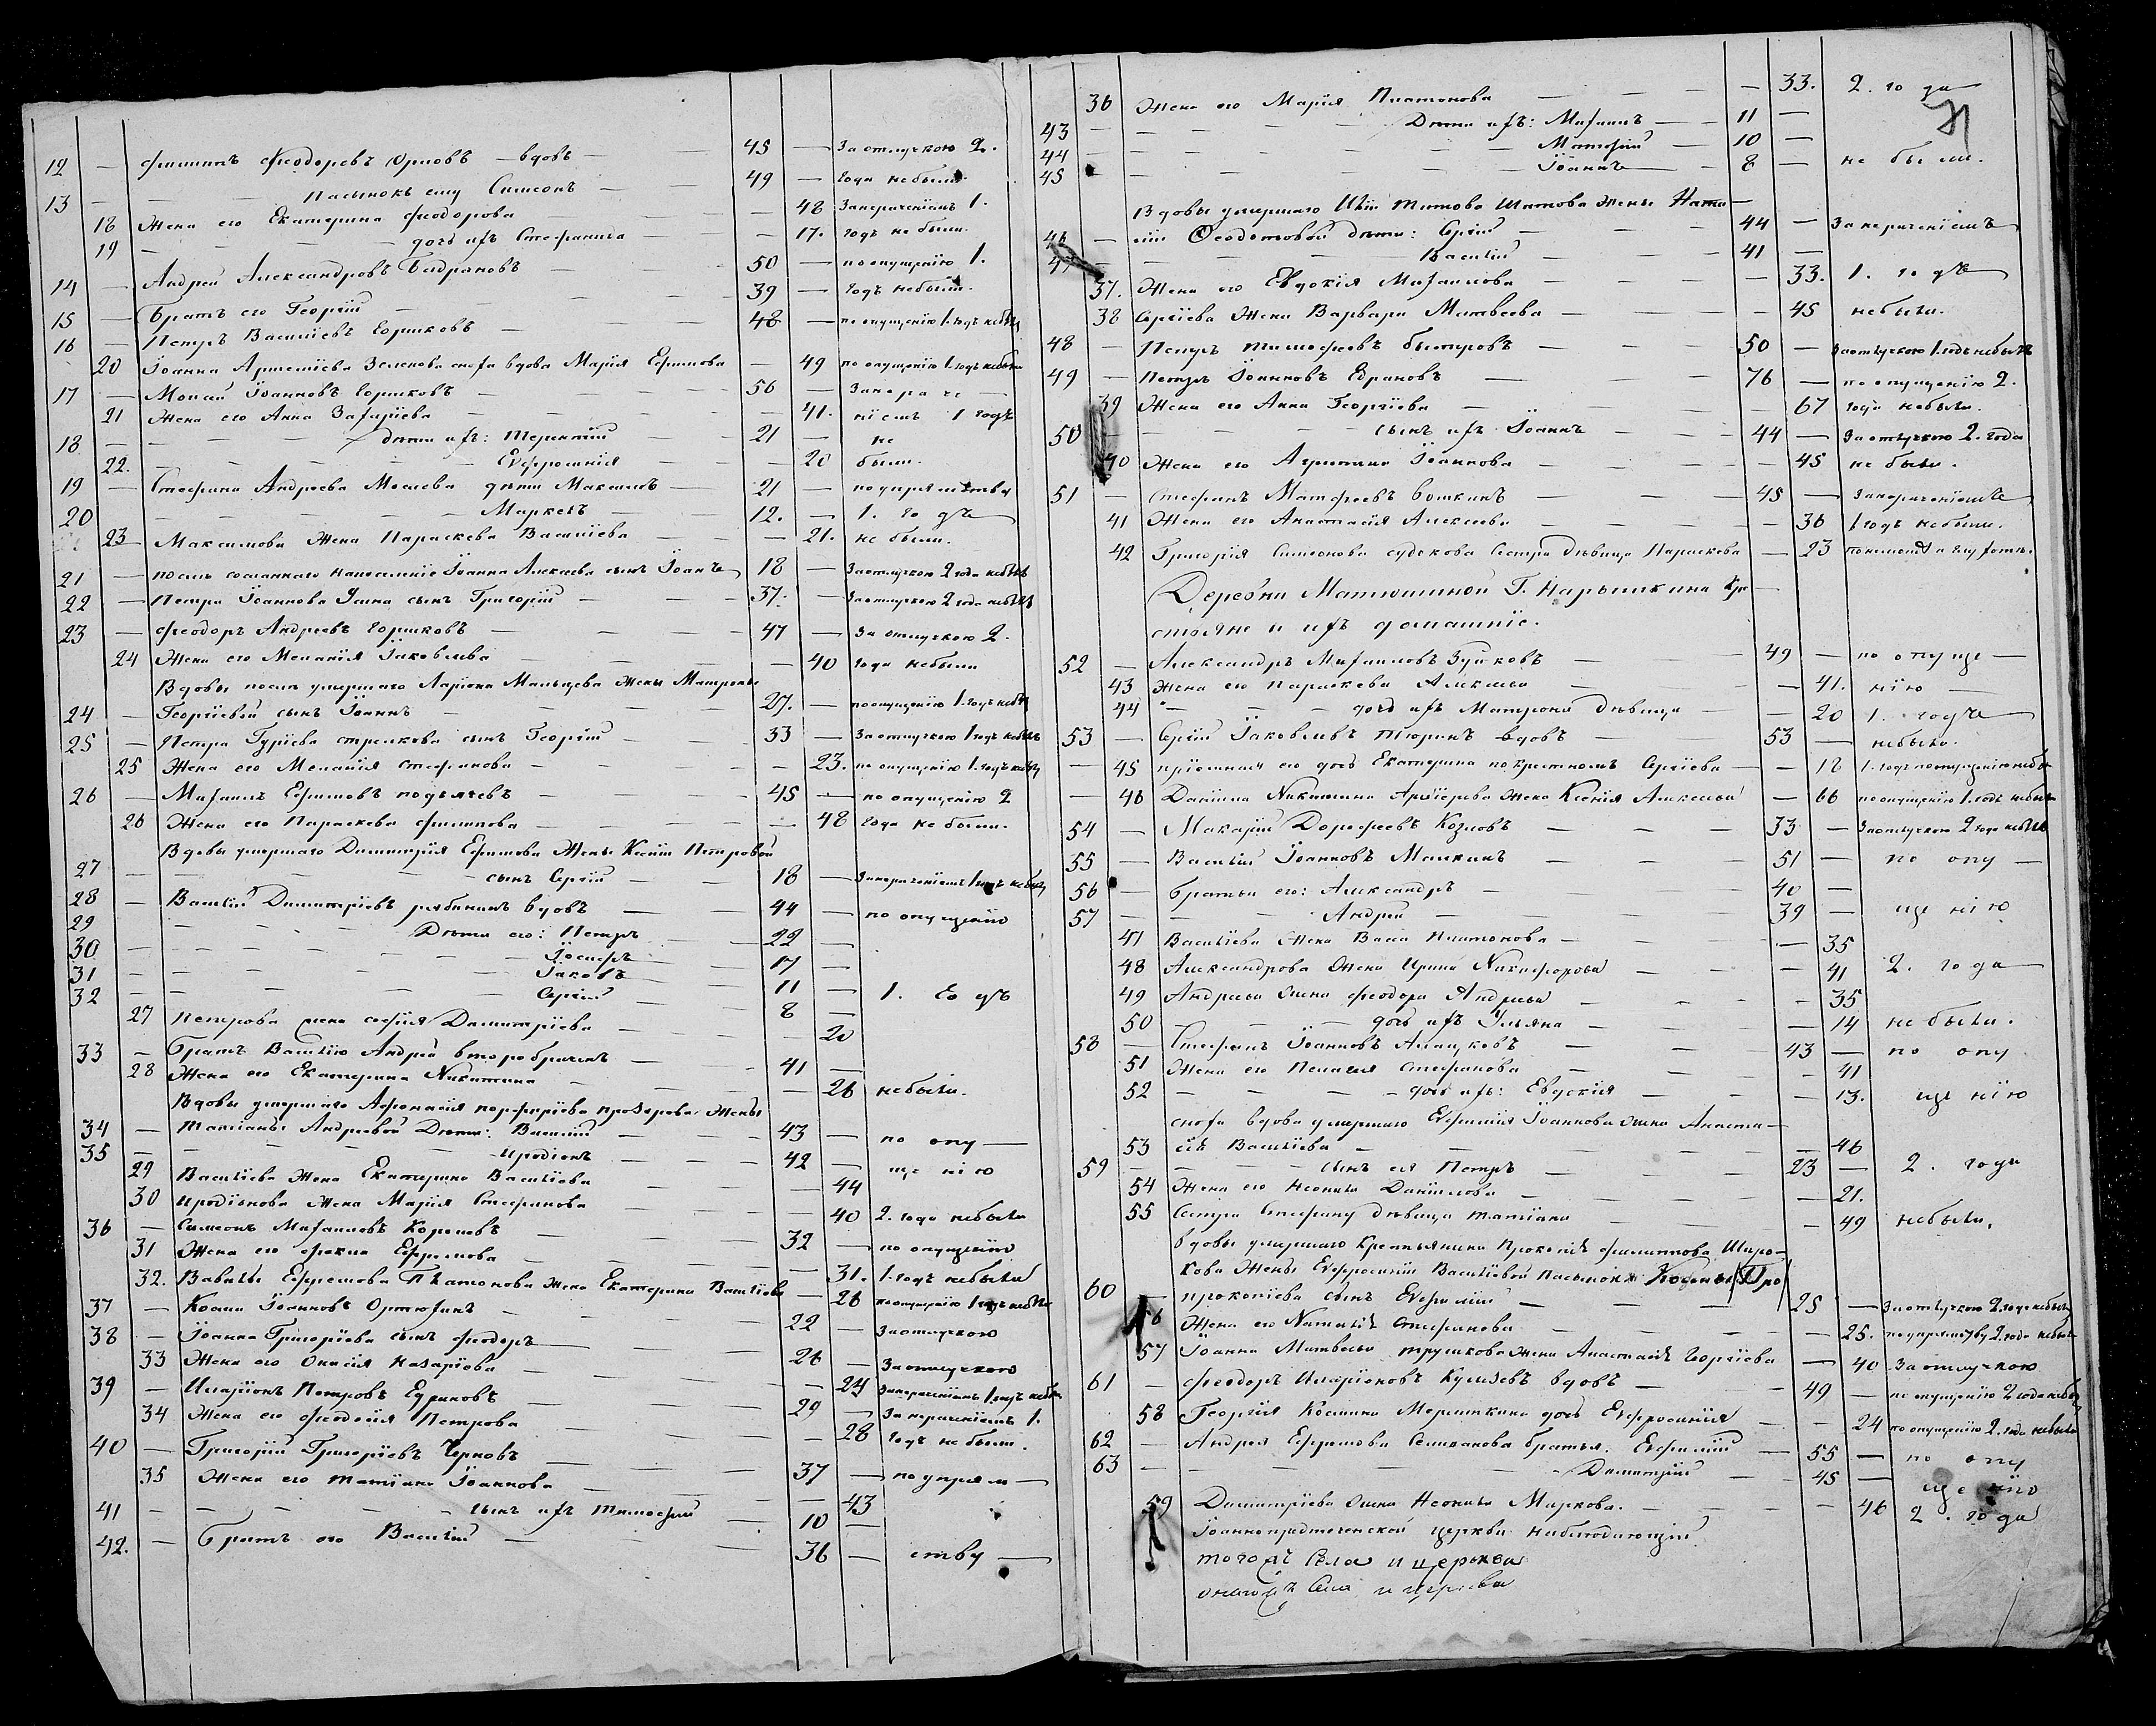 12 — Филиппъ Феодоровъ Орловъ — вдовъ — 45 — За отлучкою 2.
13 — Пасынокъ ему Симеонъ — 49 — года небыли.
18 Жена его Екатерина Феодорова — 48 За нерачениемъ 1.
19 — дочь ихъ Стефанида — 17. годъ не были.
14 — Андрей Александровъ — 50 — по опущенію 1.
15 — Братъ его Георгій — 39 — годъ небыли.
16 — Петръ Василіевъ Горшковъ — 48 — по опущенію 1. годъ небылъ
20 Іоанна Артеміева Зеленова сноха вдова Марія Ефимова — 49 по опущенію 1. годъ небыла
17 — Іоанновъ Горшковъ — 56 — За нера че —
21 Жена его Анна Захаріева — 41. ніемъ 1 годъ
18 — дѣти ихъ: Терентій — 21 — не
22. — Евфросинія — 20 были.
19 — Стефана Андреева Моисеева дѣти Максимъ — 21 — по упрямству
20 — Маркелъ — 12. — 1. го дъ
23 Максимова Жена Параскева Василіева — 21. не были.
21 — после сосланнаго на поселеніе Іоанна Алексѣева сынъ Іоаннъ 18 — За отлучкою 2 года небылъ
22 — Петра Іоаннова сынъ Григорій — 37. — За отлучкою 2 года небылъ
23 — Феодоръ Андреевъ Горшковъ — 47 — За отлучкою 2.
24 Жена его Меланія Іаковлева — 40 года небыли
Вдовы после умершаго Ларіона Мальцева Жены Матроны
24 — Георгіевой сынъ Іоаннъ — 27. — по опущенію 1. годъ небылъ
25 — Петра Гуріева стрелкова сынъ Георгій — 33 — За отлучкою 1 годъ небылъ
25 Жена его Меланія Стефанова — 23. по опущенію 1. годъ небыла
26 — Михаилъ Ефимовъ — 45 — по опущенію 2
26 Жена его Параскева Филипова — 48 года не были.
Вдовы умершаго Димитрія Ефимова Жены Ксеніи Петровой
27 — сынъ Сергій — 18 — За нераченіемъ 1 годъ небылъ
28 — Василій Димитріевъ рябининъ вдовъ — 44 — по опущенію
29 — Дѣти его: Петръ — 22 —
30 — Іосифъ — 17 —
31 — Іаковъ — 11 — 1. го дъ
32 — Сергій — 8 —
27 Петрова жена софія Димитріева — 20
33 — Братъ Василію Андрей второбраченъ — 41 —
28 Жена его Екатерина Никитина — 26 небыли.
Вдовы умершаго Афонасія порфиріева прозорова Жены
34 — Татіаны Андреевой Дѣти: Василій — 43 — по опу —
35 — Иродіонъ — 42 — ще нію
29 Василіева Жена Екатерина Василіева — 44
30 Иродіонова Жена Марія Стефанова — 40 2. года небыли
36 — Симеонъ Михаиловъ — 32 — по опущенію
31 Жена его Фекла Ефремова — 31. 1. годъ небыли
32. Вавилы Ефремова Платонова жена Екатерина Василіева — 26 по опущенію 1 годъ небыла
37 — Косма Іоанновъ Ортюхинъ — 22 — За отлучкою
38 — Іоанна Григоріева сынъ Феодоръ — 26 — За отлучкою
33 Жена его Назаріева — 24 За нераченіемъ 1 годъ небыла
39 — Иларіонъ Петровъ Едриковъ — 29 — За нераченіемъ 1.
34 Жена его Феодосія Петрова — 28 годъ не были.
40 — Григорій Григоріевъ Черновъ — 37 — по упрям —
35 Жена его Татіана Іоаннова — 43
41 — сынъ ихъ Тимофей — 10 —
42. — Братъ его Василій — 36 — ству —
36 Жена его Марія Платонова — 33. 2. го да
43 — Дѣти ихъ: Михаилъ — 11 —
44 — Матфей — 10 —
45 — Іоаннъ — 8 — не были.
Вдовы умершаго Титова Жены Ната—
46 — ліи Феодотовой дѣти: Сергій — 44 — За нераченіемъ
47 — Василій — 41 —
37. Жена его Евдокія Михаилова — 33. 1. го дъ
38 Сергіева Жена Варвара Матвеева — 45 небыли.
48 — Петръ Тимофеевъ — 50 — За отлучкою 1 годъ небылъ
49 — Петръ Іоанновъ Едриковъ — 76 — по опущенію 2.
39 Жена его Анна Георгіева — 67 года небыли.
50 — сынъ ихъ Іоаннъ — 44 — За отлучкою 2. года
40 Жена его Агрипина Іоаннова — 45 не были.
51 — Стефанъ Матфеевъ — 45 — За нераченіемъ
41 Жена его Анастасія Алексеева — 36 1 годъ небыли.
42 Григорія Симеонова Сестра дѣвица Параскева — 23
Деревни Матюшиной Г. Нарышкина Кре—
стьяне и ихъ домашніе.
52 — Александръ Михаиловъ Зуйковъ — 49 — по опуще —
43 Жена его Параскева Алексеева — 41. нію —
44 — дочь ихъ Матрона дѣвица — 20 1. годъ
53 — Сергій Іаковлевъ Тюринъ вдовъ — 53 — небыли.
— 45 пріемная его дочь Екатерина по крестномъ Сергіева — 12 1. годъ по опущенію небыла
— 46 Даніила Никитина жена Ксенія Алексеева — 66 по опущенію 1. годъ небыла
54 — Макарій Дорофеевъ Козловъ — 33 — За отлучкою 2 года небылъ
55 — Василій Іоанновъ — 51 — по опу —
56 — братья его: Александръ — 40 —
57 — Андрей — 39 — ще нію
47 Василіева Жена Васса Платонова — 35
48 Александрова Жена Ирина Никифорова — 41 2. го да
49 Андреева жена Феодора Андреева — 35
50 — дочь ихъ Ульяна — 14 не были.
58 — Стефанъ Іоанновъ — 43 — по опу
51 Жена его Пелагея Стефанова — 41
52 — дочь ихъ: Евдокія — 13. ще нію
сноха вдова умершаго Евфимія Іоаннова жена Анаста—
53 сія Василіева — 46
59 — сынъ ея Петръ — 23 — 2. года
54 Жена его Неонила Даніилова — 21.
55 Сестра Стефану дѣвица Татіана — 49 небыли.
вдовы умершаго Крестьянина Прокопія филиппова Широ—
кова Жены Евфросиніи Василіевой пасынокъ
60 — прокопіева сынъ Евфимій — 25 — За отлучкою 2. года небылъ
56 Жена его Наталія Стефанова — 25. по упрямству 2. года небыла
57 Іоанна Матвеева трушкова жена Анастасія Георгіева — 40 За отлучкою
61 — Феодоръ Иларіоновъ вдовъ — 49 — по опущенію 2 года небылъ
58 Георгія Космина дочь Евфросинія — 24 по опущенію 2. года небыла
62 — Андрея Ефремова Селиванова братья. Евфимій — 55 — по опу
63 — Димитрій — 45 — ще нію
59 Димитріева жена Неонила Маркова. — 46 2. го да
Іоаннопредтеченской церкви